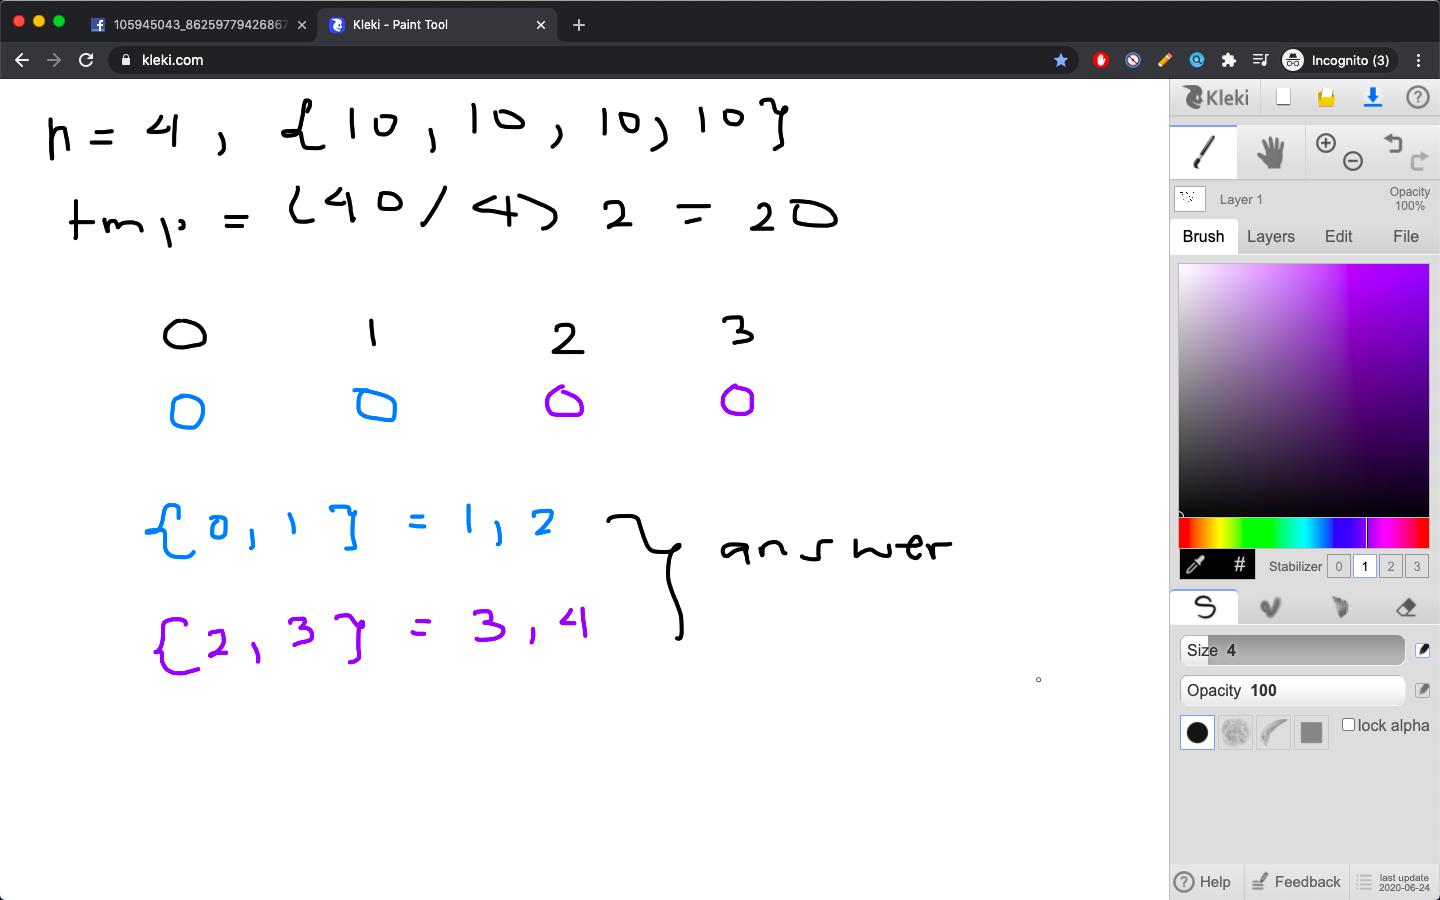 105945043_86259779426867
Kleki - Paint Tool
kleki.com
Incognito (3)
n = 4, {10, 10, 10, 10}
tmp = (40/4) 2 = 20
0 1 2 3
0 0 0 0
{0, 1} = 1, 2
answer
{2, 3} = 3, 4
Kleki
Layer 1
Opacity
100%
Brush Layers Edit File
# Stabilizer 0 1 2 3
Size 4
Opacity 100
lock alpha
Help Feedback last update
2020-06-24